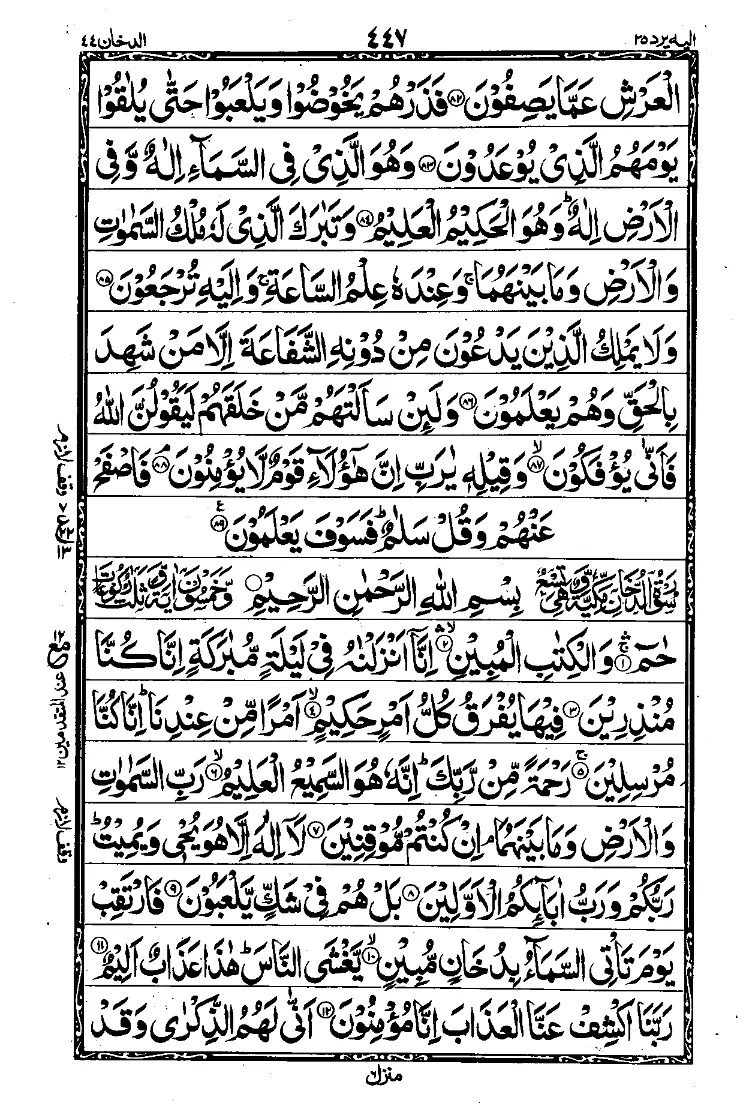 اليه يرد ٢٥
٤٤٧
الدخان ٤٤
الْعَرْشِ عَمَّا يَصِفُوْنَ ۝٨٢ فَذَرْهُمْ يَخُوْضُوْا وَيَلْعَبُوْا حَتّٰى يُلٰقُوْا
يَوْمَهُمُ الَّذِىْ يُوْعَدُوْنَ ۝٨٣ وَهُوَ الَّذِىْ فِى السَّمَآءِ اِلٰهٌ وَّفِى
الْاَرْضِ اِلٰهٌ ؕ وَهُوَ الْحَكِيْمُ الْعَلِيْمُ ۝٨٤ وَتَبٰرَكَ الَّذِىْ لَهٗ مُلْكُ السَّمٰوٰتِ
وَالْاَرْضِ وَمَا بَيْنَهُمَا ۚ وَعِنْدَهٗ عِلْمُ السَّاعَةِ ۚ وَاِلَيْهِ تُرْجَعُوْنَ ۝٨٥
وَلَا يَمْلِكُ الَّذِيْنَ يَدْعُوْنَ مِنْ دُوْنِهِ الشَّفَاعَةَ اِلَّا مَنْ شَهِدَ
بِالْحَقِّ وَهُمْ يَعْلَمُوْنَ ۝٨٦ وَلَئِنْ سَاَلْتَهُمْ مَّنْ خَلَقَهُمْ لَيَقُوْلُنَّ اللّٰهُ
فَاَنّٰى يُؤْفَكُوْنَ ۙ۝٨٧ وَقِيْلِهٖ يٰرَبِّ اِنَّ هٰٓؤُلَآءِ قَوْمٌ لَّا يُؤْمِنُوْنَ ۘ۝٨٨ فَاصْفَحْ
عَنْهُمْ وَقُلْ سَلٰمٌ ؕ فَسَوْفَ يَعْلَمُوْنَ ۝٨٩ ع
سُوْرَةُ الدُّخَانِ مَكِّيَّةٌ وَّهِىَ تِسْعٌ بِسْمِ اللّٰهِ الرَّحْمٰنِ الرَّحِيْمِ ۝ وَّخَمْسُوْنَ اٰيَةً وَّثَلٰثُ رُكُوْعَاتٍ
حٰمٓ ۚۛ۝١ وَالْكِتٰبِ الْمُبِيْنِ ۙۛ۝٢ اِنَّاۤ اَنْزَلْنٰهُ فِىْ لَيْلَةٍ مُّبٰرَكَةٍ اِنَّا كُنَّا
مُنْذِرِيْنَ ۝٣ فِيْهَا يُفْرَقُ كُلُّ اَمْرٍ حَكِيْمٍ ۙ۝٤ اَمْرًا مِّنْ عِنْدِنَا ؕ اِنَّا كُنَّا
مُرْسِلِيْنَ ۚ۝٥ رَحْمَةً مِّنْ رَّبِّكَ ؕ اِنَّهٗ هُوَ السَّمِيْعُ الْعَلِيْمُ ۙ۝٦ رَبِّ السَّمٰوٰتِ
وَالْاَرْضِ وَمَا بَيْنَهُمَا ۘ اِنْ كُنْتُمْ مُّوْقِنِيْنَ ۝٧ لَاۤ اِلٰهَ اِلَّا هُوَ يُحْىٖ وَيُمِيْتُ ؕ
رَبُّكُمْ وَرَبُّ اٰبَآئِكُمُ الْاَوَّلِيْنَ ۝٨ بَلْ هُمْ فِىْ شَكٍّ يَّلْعَبُوْنَ ۝٩ فَارْتَقِبْ
يَوْمَ تَاْتِى السَّمَآءُ بِدُخَانٍ مُّبِيْنٍ ۙ۝١٠ يَّغْشَى النَّاسَ ؕ هٰذَا عَذَابٌ اَلِيْمٌ ۝١١
رَبَّنَا اكْشِفْ عَنَّا الْعَذَابَ اِنَّا مُؤْمِنُوْنَ ۝١٢ اَنّٰى لَهُمُ الذِّكْرٰى وَقَدْ
وقف لازم
عند المتقدمين ١٢
وقف لازم
منزل ٦